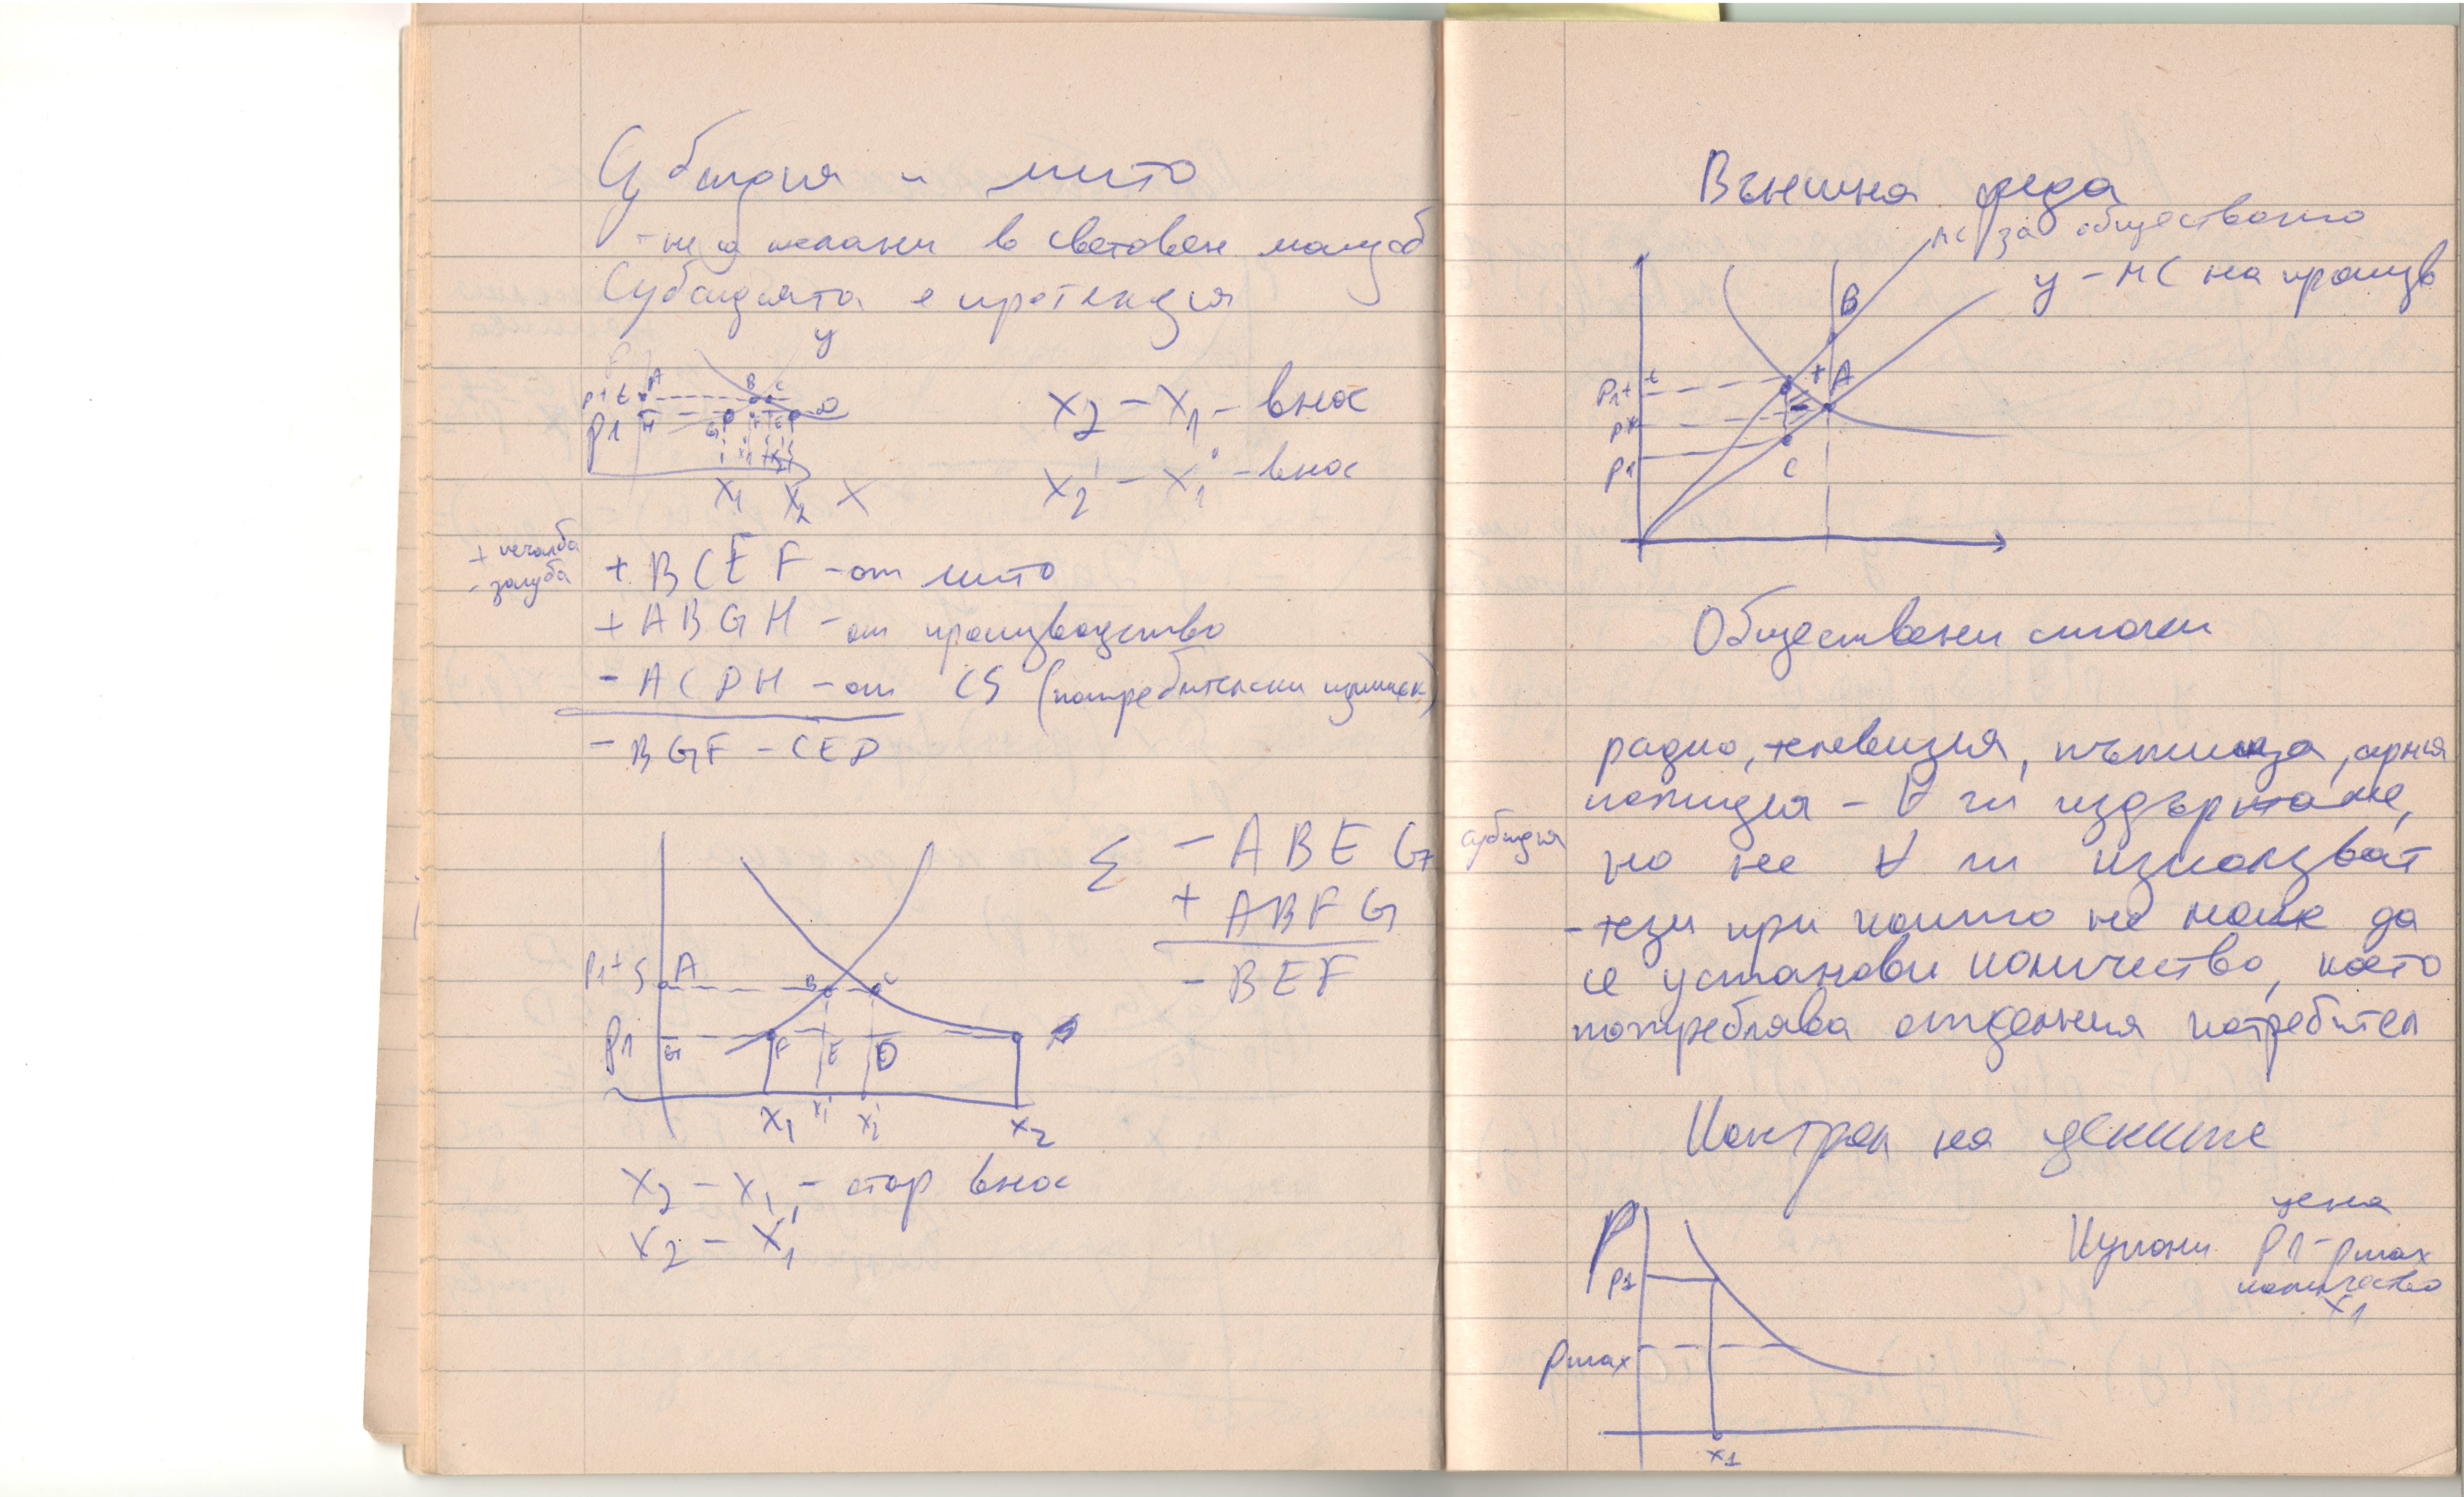 Субсидия и мито
- не са желани в световен мащаб
Субсидията е протекция
y
P1+t A B C
P1 H G F E D
X1 X1' X2' X2 X
X2 - X1 - внос
X2' - X1' - внос
+ печалба
- загуба
+ BCEF - от мито
+ ABGH - от производство
- ACDH - от CS (потребителски излишек)
- BGF - CED
Σ - ABEG субсидия
+ ABFG
- BEF
P1+S A B C
P1 G F E D
X1 X1' X2' X2
X2 - X1 - стар внос
X2 - X1'
Външна среда
MC за обществото
y - MC на произв
B
P1+t + A
P*
P1 C
Обществени стоки
радио, телевизия, пътища, армия
полиция - ∀ ги издържаме,
но не ∀ ги използват
- тези при които не може да
се установи количество, което
потребява отделния потребител
Контрол на цените
P
P1
Pmax
X1
Купони цена
P1 - Pmax
количество
X1